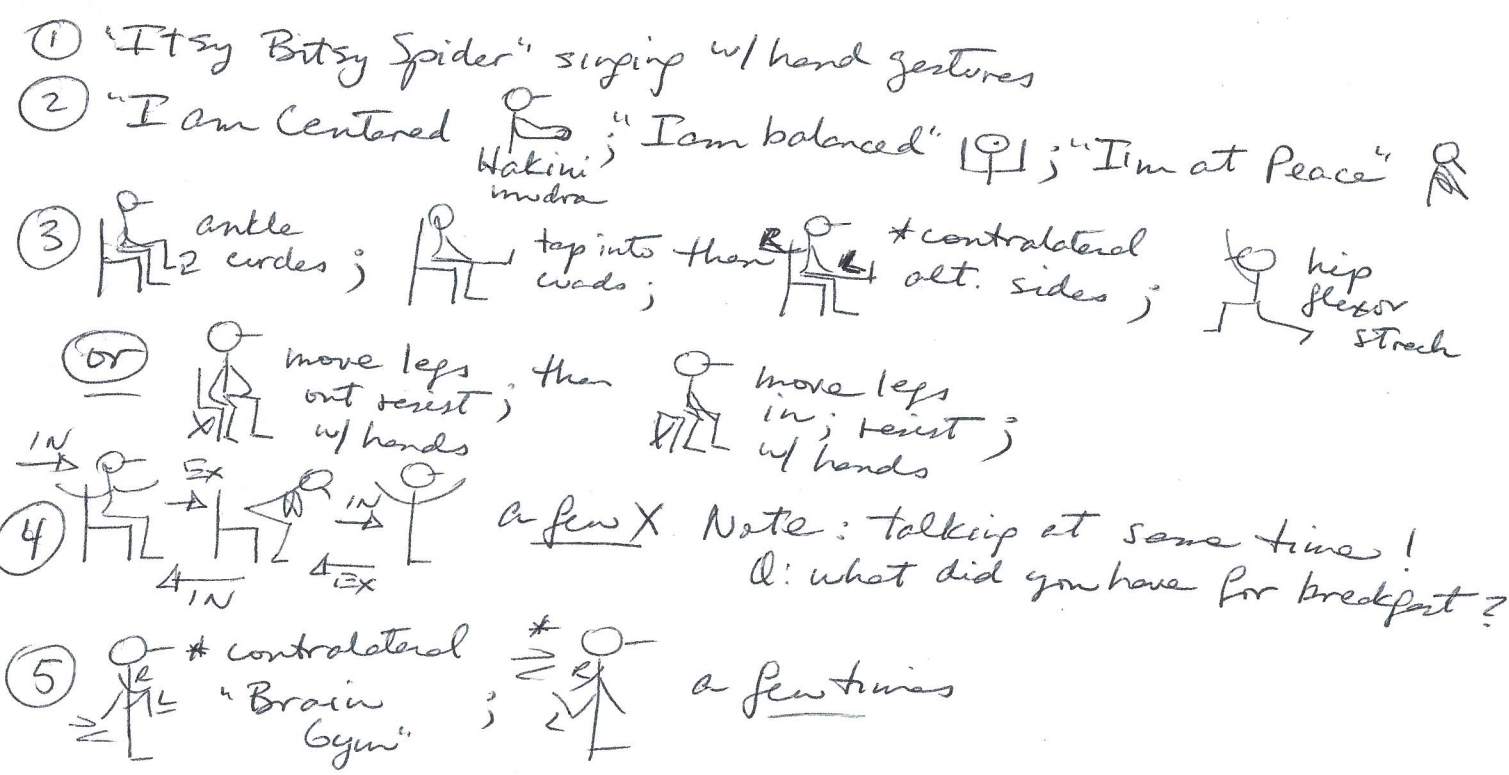 ① "Itsy Bitsy Spider" singing w/ hand gestures
② "I am Centered ; "I am balanced" ; "I'm at Peace"
Hakini
mudra
③ ankle circles ; tap into them quads ; R L * contralateral alt. sides ; hip flexor strech
or move legs out resist ; w/ hands then move legs in ; resist ; w/ hands
④ IN EX IN a few X Note : talking at same time !
IN EX Q: what did you have for breakfast ?
⑤ R L * contralateral "Brain Gym" ; * R L a few times